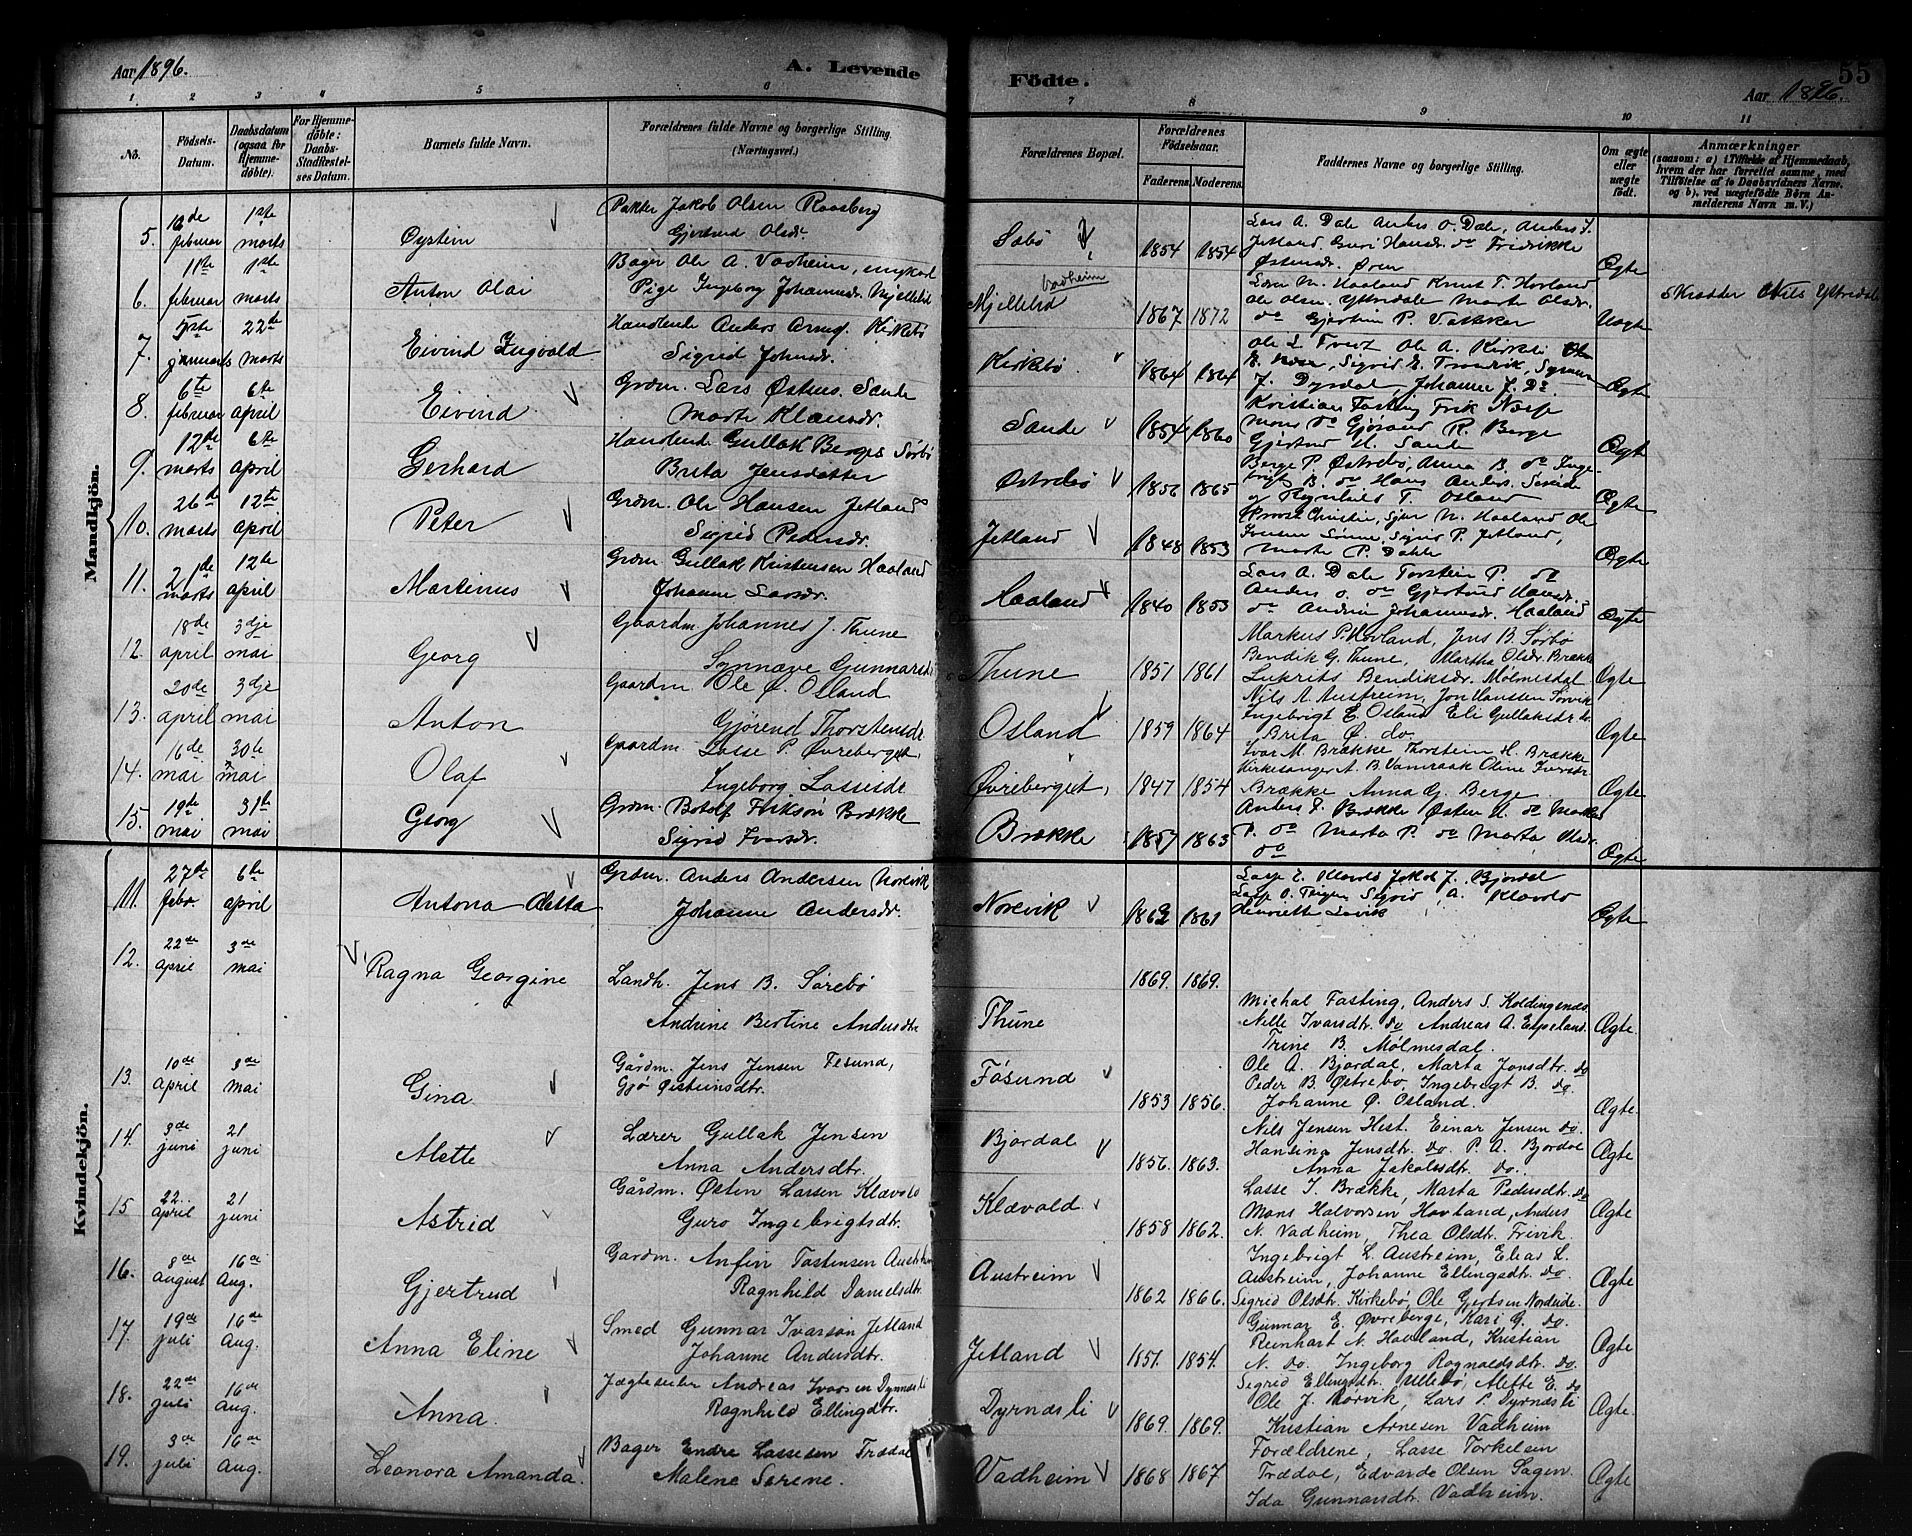 Aar 1896.
A. Levende
Födte.
55
Aar 1896.
1 2 3 4 5 6 7 8 9 10 11
No.
Födsels-
Datum.
Daabsdatum
(ogsaa for
Hjemme-
döbte).
For Hjemme-
döbte:
Daabs-
Stadfæstel-
ses Datum.
Barnets fulde Navn.
Forældrenes fulde Navne og borgerlige Stilling.
(Næringsvei.)
Forældrenes Bopæl.
Forældrenes
Födselsaar.
Faderens Moderens.
Faddernes Navne og borgerlige Stilling.
Om ægte
eller
uægte
födt.
Anmærkninger
(saasom: a) i Tilfælde af Hjemmedaab,
hvem der har forrettet samme, med
Tilföielse af to Daabsvidners Navne,
og b), ved uægtefödte Börn An-
melderens Navn m. V.)
Mandkjön.
5. februar 1ste marts Øystein
Jakob Olsen
Gjertrud Olsdr.
1854 1854
Lars A. Dale Anders O. Dale, Anders
Jetland Hansdr. do Fridrikke
Østensdr. Øren Ægte
6. 11te februar 1ste marts Anton Olai
Bager Ole A. Vadheim, ungkarl
Pige Ingeborg Johannesdr. Mjellelid
Vadheim
Mjellelid 1867 1872
Haaland Knut T. Hovland
Ole Olsen Ytredale Marte Olsdr.
do Gjertine P. Uægte
Nils Ytredale
7. 5te januar 22te marts Eivind Ingvald
Handlende Anders Kirkebø
Sigrid Johnsdr.
Kirkebø 1864 1864
Ole A. Kirkebø
Sigrid E.
J. Dyrdal, Johanne J. Do Ægte
8. 6te februar 6te april Eivind
Grdm. Lars Østens. Sande
Marte Klausdr.
Sande 1854 1860
Kristian Fasting
Mons do Gjørand R. Berge
Gjertrud H. Sande Ægte
9. 12te marts 6te april Gerhard
Handlend. Gullak Berges Sørbø
Brita Jensdatter
Østrebø 1856 1865
Berge P. Østrebø, Anna B. do Inge-
brigt B. do Hans Anders.
og Ragnhild T. Osland Ægte
10. 26de marts 12te april Peter
Grdm. Ole Hansen Jetland
Sigrid Pedersdr.
Jetland 1848 1853
Haaland Ole
Sigrid P. Jetland,
Marte P. Dahle Ægte
11. 21de marts 12te april Martinus
Grdm. Gullak Kristensen Haaland
Johanne Larsdr.
Haaland 1840 1853
Lars A. Dale Torstein P. do
Anders O. do Gjertrud Hansdr.
do Andrine Johannesdr. Haaland Ægte
12. 18de april 3dje mai Georg
Gaardm. Johannes J. Thune
Synnæve Gunnarsdr.
Thune 1851 1861
Markus P. Hovland, Jens B. Sørbø
Bendik G. Thune, Martha Olsdr. Brække
Lukrits Bendiksdr. Mølmesdal Ægte
13. 20de april 3dje mai Anton
Gaardm Ole Ø. Osland
Gjørend Thorstensdr
Osland 1859 1864
Nils A. Austreim, Jon Hanssen Sørvik
Ingebrigt E. Osland Eli Gullaksdr
Brita Ø. do. Ægte
14. 16de mai 30te mai Olaf
Gaardm. Lasse P. Øvreberget
Ingeborg Lassesdr
Øvreberget, 1847 1854
Ivar M. Brække Thorstein H. Brække
Kirkesanger A. B. Vamraak Oline Iversdr
Brække Anna G. Berge Ægte
15. 19te mai 31te mai Georg
Grdm. Botolf Eriksøn Brække
Sigrid Ivarsdr.
Brække 1857 1863
Anders T. Brække Østen A. do Markus
P. do Marta P. do Marta Olsdr
do Ægte
Kvindekjön.
11. 27de febr. 6te april Antona
Grdm. Anders Andersen Norevik
Johanne Andersdr.
Norevik 1862 1861
Lasse E. Klævold Jakob J. Bjordal
Sigrid A. Klævold
Henriette Ægte
12. 22de april 3de mai Ragna Georgine
Landh. Jens B. Sørebø
Andrine Bertine Andersdtr
Thune 1869. 1869.
Michal Fasting, Anders S. Koldingsnæs
Nille Ivarsdtr. do Andreas A. Espeland.
Trine B. Mølmesdal. Ægte
13. 10de april 3de mai Gina
Gårdm. Jens Jensen Fesund,
Gjø Øisteinsdtr.
Føsund 1853 1856.
Ole A. Bjordal, Marta Jonsdtr. do
Peder B. Østrebø, Ingebrigt B. do.
Johanne Ø. Osland. Ægte.
14. 3de juni 21 juni Alette
Lærer Gullak Jensen
Anna Andersdtr.
Bjordal 1856. 1863.
Nils Jensen Hest. Einar Jensen do.
Hansina Jensdtr. do. P. A. Bjordal
Anna Jakobsdtr. do. Ægte
15 22. april 21 juni Astrid
Gårdm. Østen Larsen Klævold
Guro Ingebrigtsdtr.
Klævold 1858 1862.
Lasse I. Brække, Marta Pedersdtr. do
Mons Halvorsen Hovland, Anders
N. Vadheim, Thea Olsdtr. Frivik. Ægte
16. 8de august 16de Aug. Gjertrud
Gårdm. Anfin Tostensen Austreim
Ragnhild Danielsdtr.
Austreim 1862 1866.
Ingebrigt L. Austreim, Elias L.
Austreim, Johanne Ellingsdtr. do.
Sigrid Olsdtr. Kirkebø, Ole Gjertsen Nordeide. Ægte
17. 19de juli 16de Aug. Anna Eline
Smed Gunnar Ivarsøn Jetland
Johanne Andersdtr.
Jetland 1851. 1854.
Gunnar E. Øvreberge, Kari G. do.
Reinhart N. Hovland, Kristian
N. do. Ingeborg Ragnaldsdtr. do Ægte
18. 22de juli 16de Aug. Anna.
Andreas Ivarsen Dyrnæsli
Ragnhild Ellingsdtr.
Dyrnæsli 1869. 1869.
Sigrid Ellingsdtr. Alette E. do
Ole J. Lars P. Dyrnæsli
Kristian Arnesen Vadheim Ægte.
19. 3de juli 16de Aug. Leonora Amanda.
Bager Endre Lassesen Trædal
Malene Serene.
Vadheim 1868 1867
Forældrene, Lasse Torkelsen
Trædal, Edvarda Olsen Sagen.
Ida Gunnarsdtr. Vadheim. Ægte